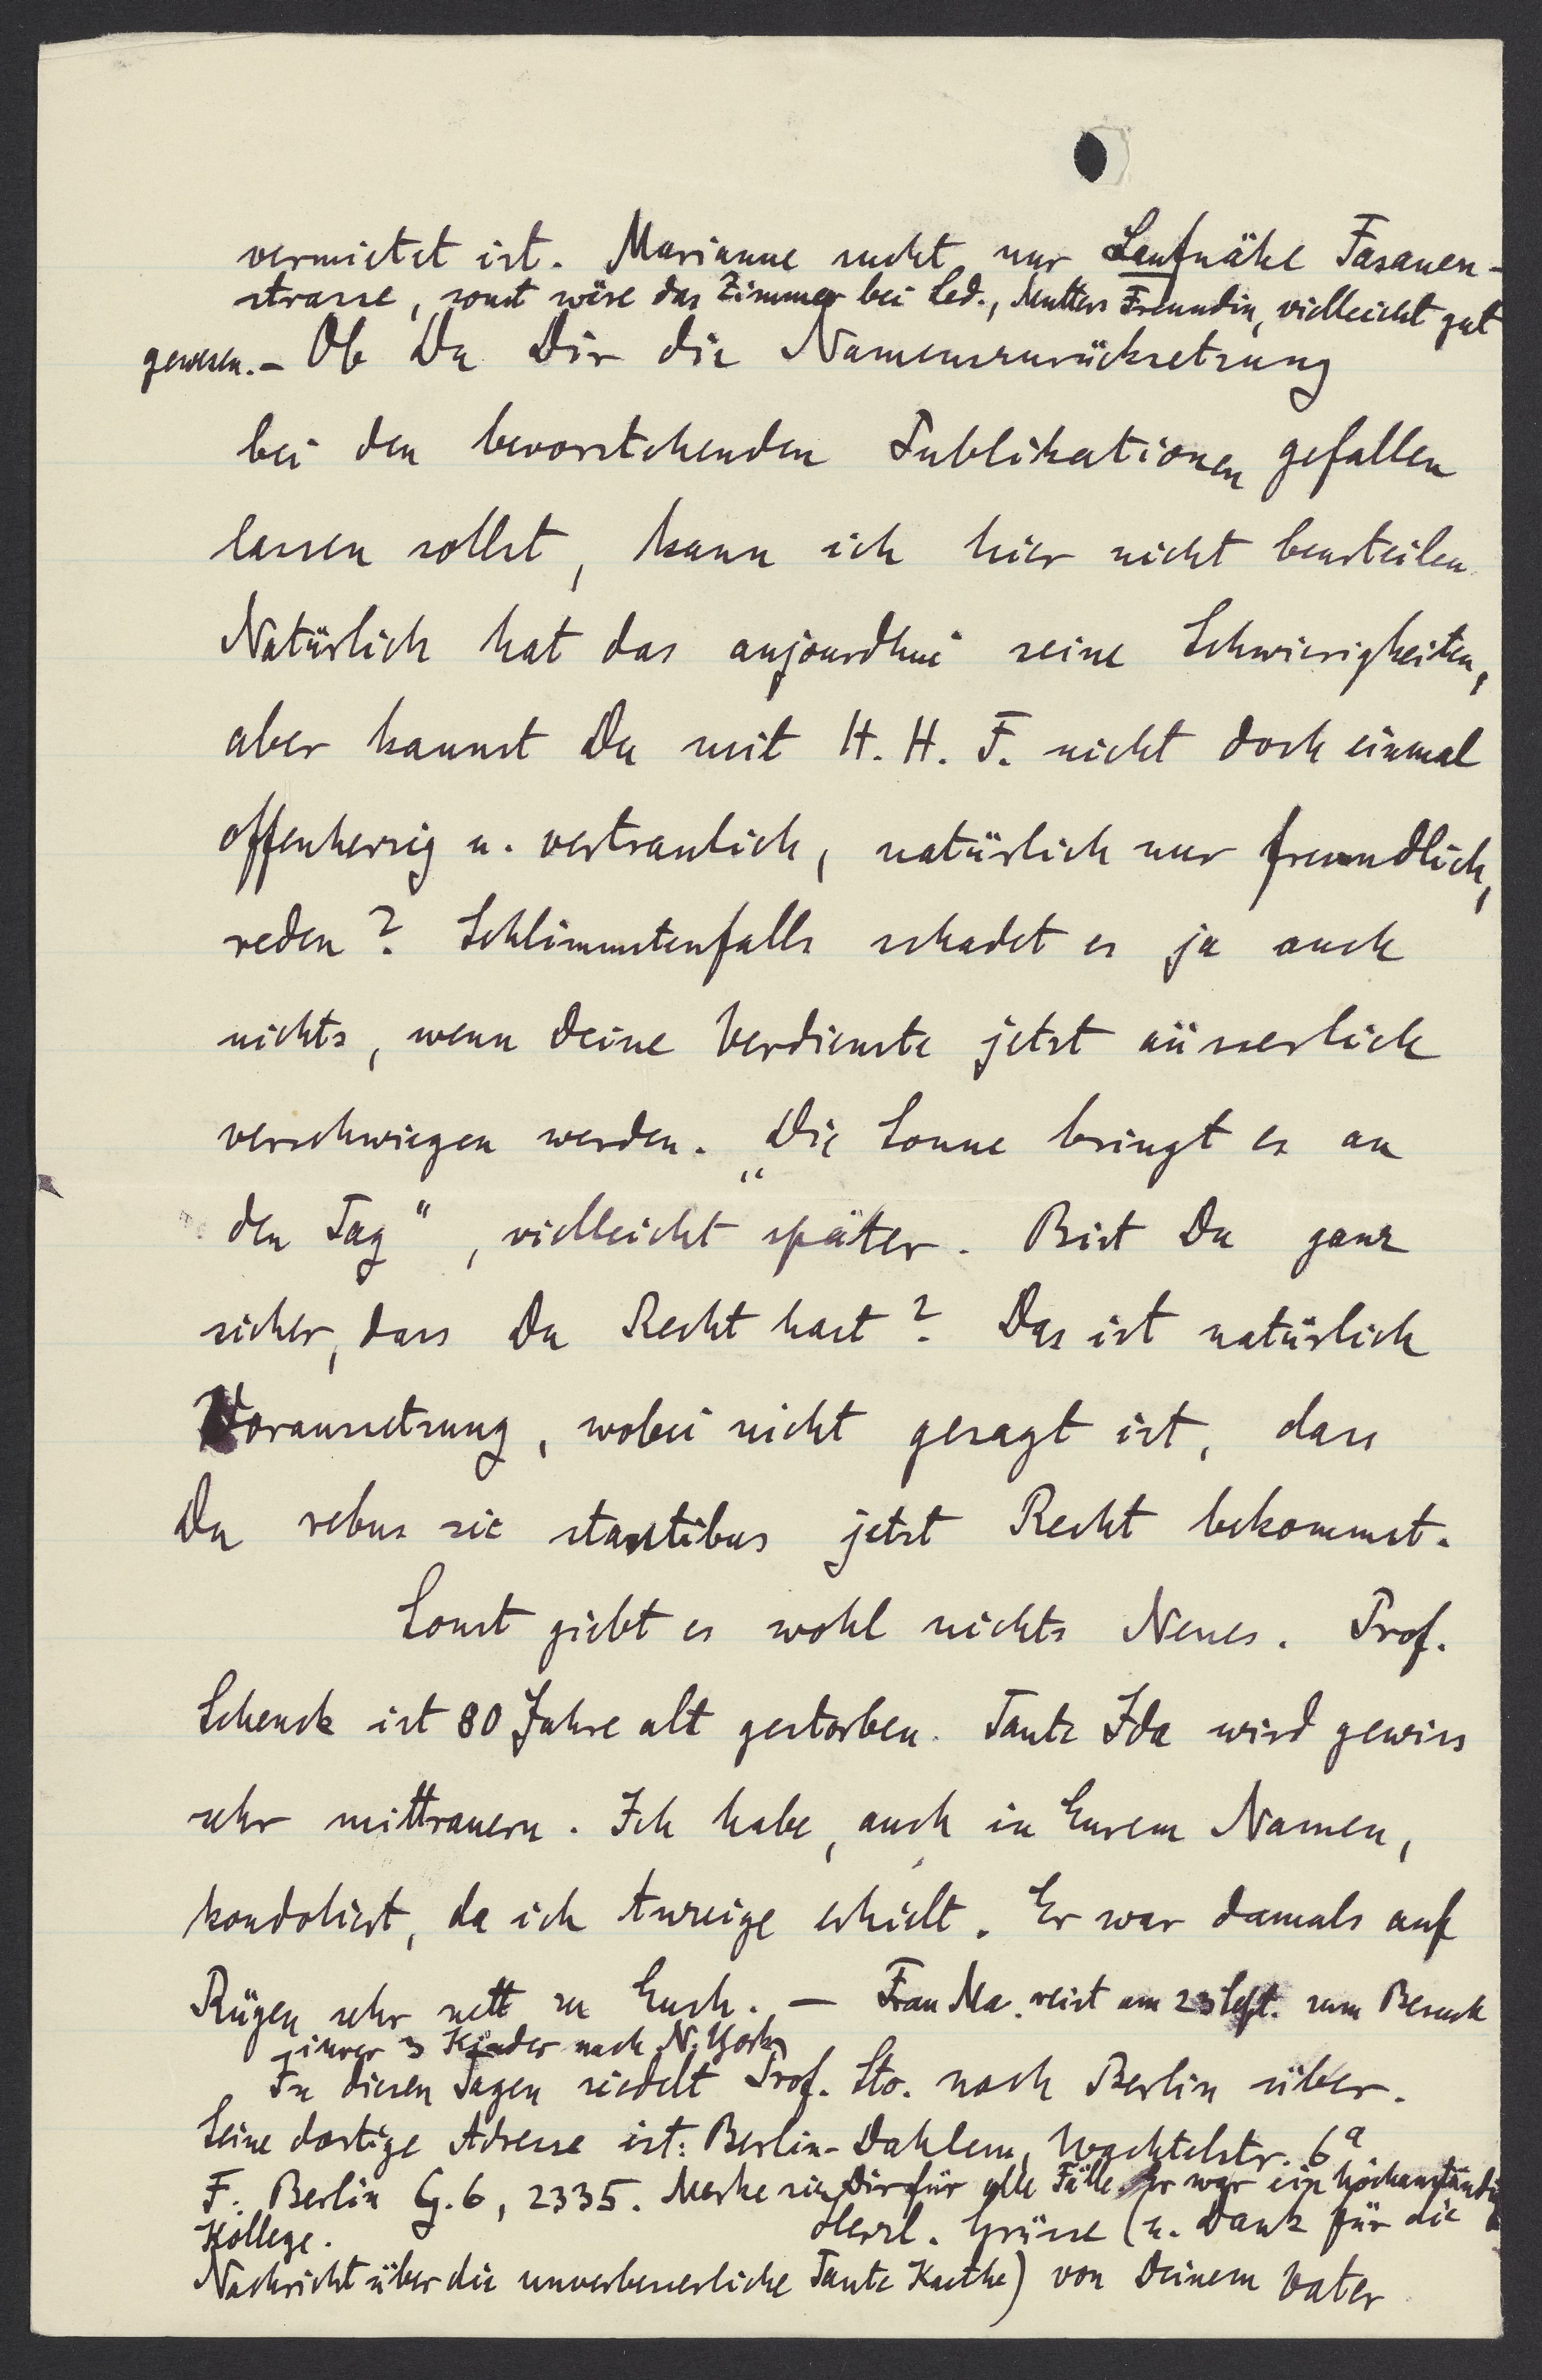 vermietet ist. Marianne sucht nur Laufnähe Fasanen-
strasse, sonst wäre das Zimmer bei Led., Mutters Freundin, vielleicht gut
gewesen. - Ob Du Dir die Namenszurücksetzung
bei den bevorstehenden Publikationen gefallen
lassen sollst, kann ich hier nicht beurteilen.
Natürlich hat das aujourdhui seine Schwierigkeiten,
aber kannst Du mit H. H. F. nicht doch einmal
offenherzig u. vertraulich, natürlich nur freundlich,
reden? Schlimmstenfalls schadet es ja auch
nichts, wenn Deine Verdienste jetzt äusserlich
verschwiegen werden. „Die Sonne bringt es an
den Tag“, vielleicht später. Bist Du ganz
sicher, dass Du Recht hast? Das ist natürlich
Voraussetzung, wobei nicht gesagt ist, dass
Du rebus sic stantibus jetzt Recht bekommst.
Sonst giebt es wohl nichts Neues. Prof.
Schenck ist 80 Jahre alt gestorben. Tante Ida wird gewiss
sehr mittrauern. Ich habe, auch in Eurem Namen,
kondoliert, da ich Anzeige erhielt. Er war damals auf
Rügen sehr nett zu Euch. — Frau Ma. reist am 23 Sept. zum Besuch
ihrer 3 Kinder nach N. York.
In diesen Tagen siedelt Prof. Sto. nach Berlin über.
Seine dortige Adresse ist: Berlin-Dahlem, Wachtelstr. 6a
F. Berlin G. 6, 2335. Merke sie Dir für alle Fälle. Er war ein höchanständig
Kollege. Herzl. Grüsse (u. Dank für die
Nachricht über die unverbesserliche Tante Kaethe) von Deinem Vater